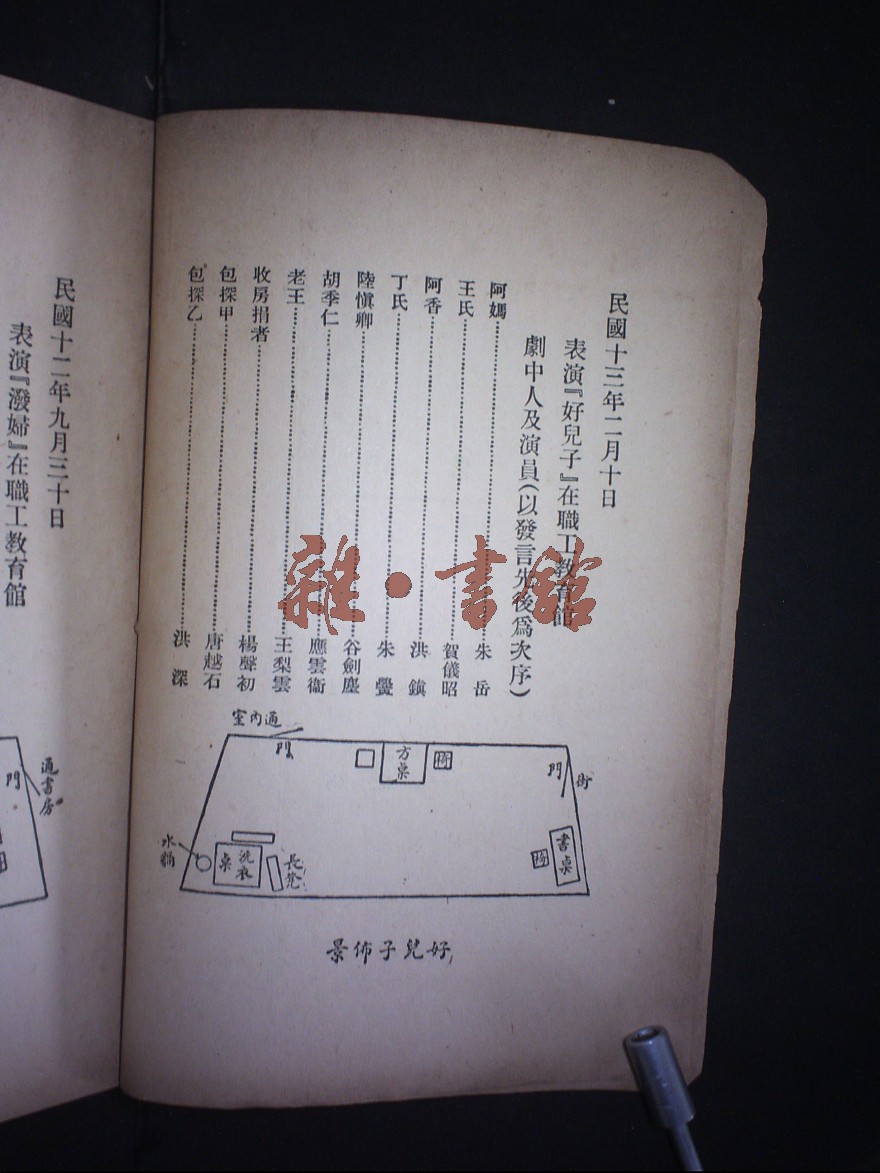 民國十三年二月十日
表演『好兒子』在職工教育館
劇中人及演員(以發言先後爲次序)
阿媽………朱岳
王氏………賀儀昭
阿香………洪鎭
丁氏………朱㽞
陸愼卿………谷劍塵
胡季仁………應雲衞
老王………王梨雲
收房捐者………楊聲初
包探甲………唐越石
包探乙………洪深
室內通
門
方桌
椅
門
街
水桶
洗衣桌
長凳
椅
書桌
景佈子兒好
民國十二年九月三十日
表演『潑婦』在職工教育館
門
通書房
椅
雜·書館